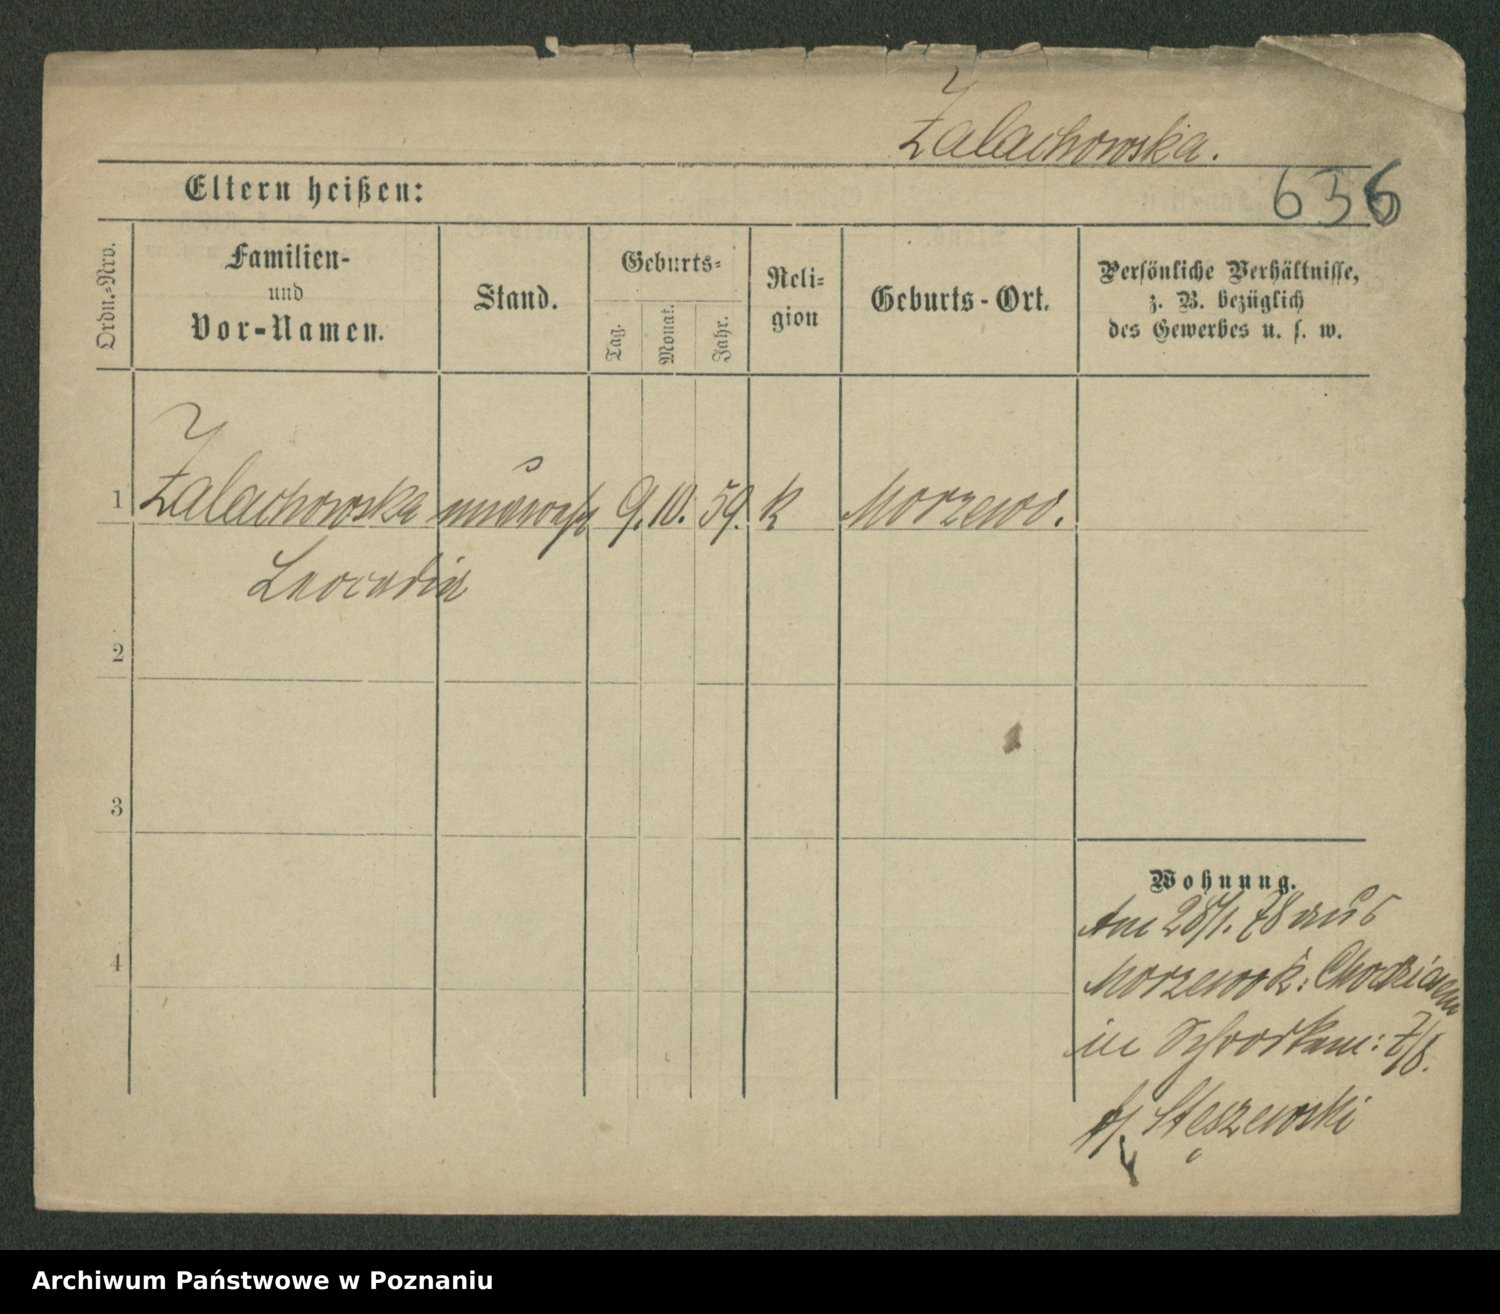 Zalachowska.
636
Eltern heißen:
Ordn.-Nro.
Familien-
und
Vor-Namen.
Stand.
Geburts-
Tag.
Monat.
Jahr.
Reli-
gion
Geburts-Ort.
Persönliche Verhältnisse,
z. B. bezüglich
des Gewerbes u. s. w.
1 Zalachowska unverh 9. 10. 59. k Morzewo.
Leocadia
2
3
4
Wohnung.
Am 28/1. 78 aus
Morzewo k: Chodziesen
in
b/ Stęszewski